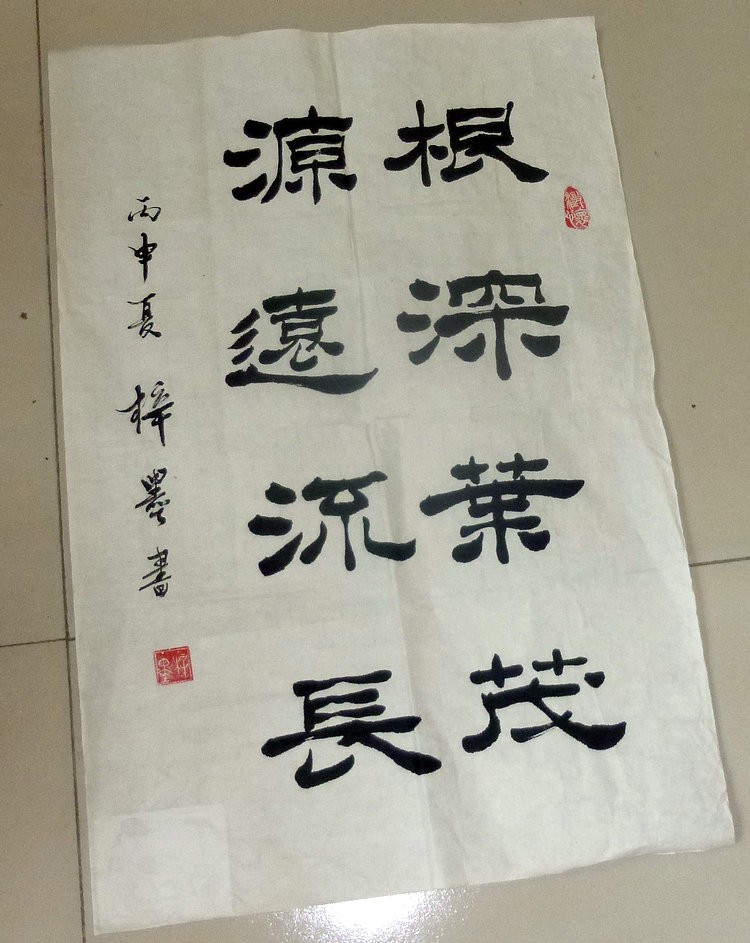 根深葉茂
源遠流長
丙申夏 梓墨書
梓墨